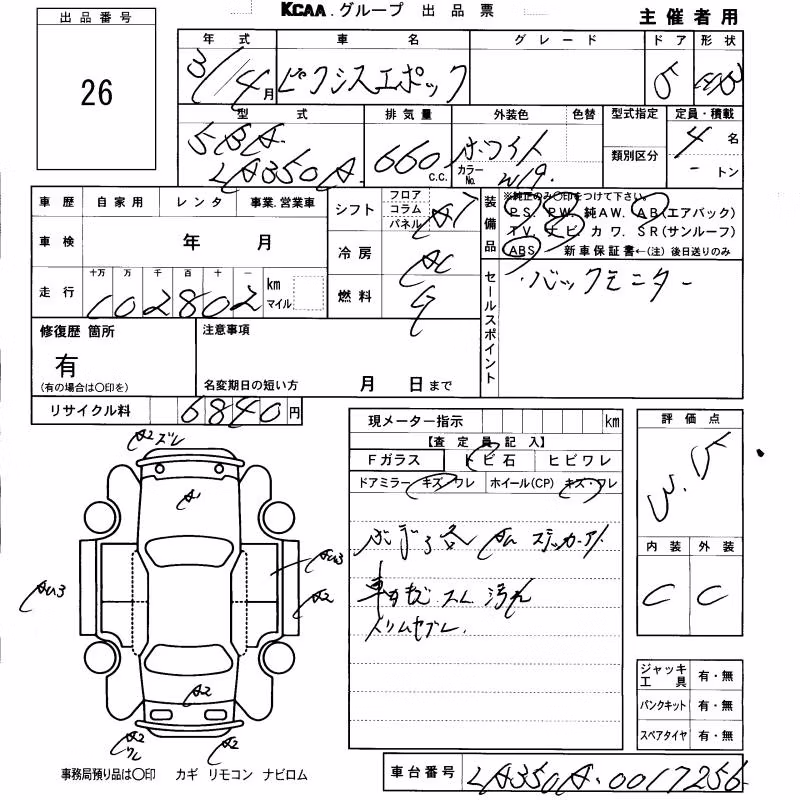 KCAA.グループ 出品票
主催者用
出品番号
26
年式 車名 グレード ドア 形状
3/4月 ピクシスエポック 5
型式 排気量 外装色 色替 型式指定 定員・積載
5BA 660 c.c. ホワイト 4 名
LA350A カラーNo. W19. 類別区分 - トン
車歴 自家用 レンタ 事業.営業車
車検 年 月
走行 十万 万 千 百 十 一
102802 km マイル
シフト フロア コラム パネル AT
冷房 AC
燃料 G
装備品 ※純正のみ○印をつけて下さい。
PS. PW. 純AW. AB(エアバック)
TV. ナビ. カワ. SR(サンルーフ)
ABS 新車保証書←(注) 後日送りのみ
セールスポイント
・バックモニター
修復歴 箇所 注意事項
有
(有の場合は○印を) 名変期日の短い方 月 日まで
リサイクル料 6840 円
現メーター指示 km
【査定員記入】
Fガラス トビ石 ヒビワレ
ドアミラー キズ/ワレ ホイール(CP) キズ・ワレ
評価点
3.5
内装 外装
C C
A2 ズレ
A
AU3
AU3
A2
A2
A2
ワレ
A2
車内モビ スレ 汚れ
トリムセブレ.
ジャッキ工具 有・無
パンクキット 有・無
スペアタイヤ 有・無
事務局預り品は○印 カギ リモコン ナビロム
車台番号 LA350A-0017256